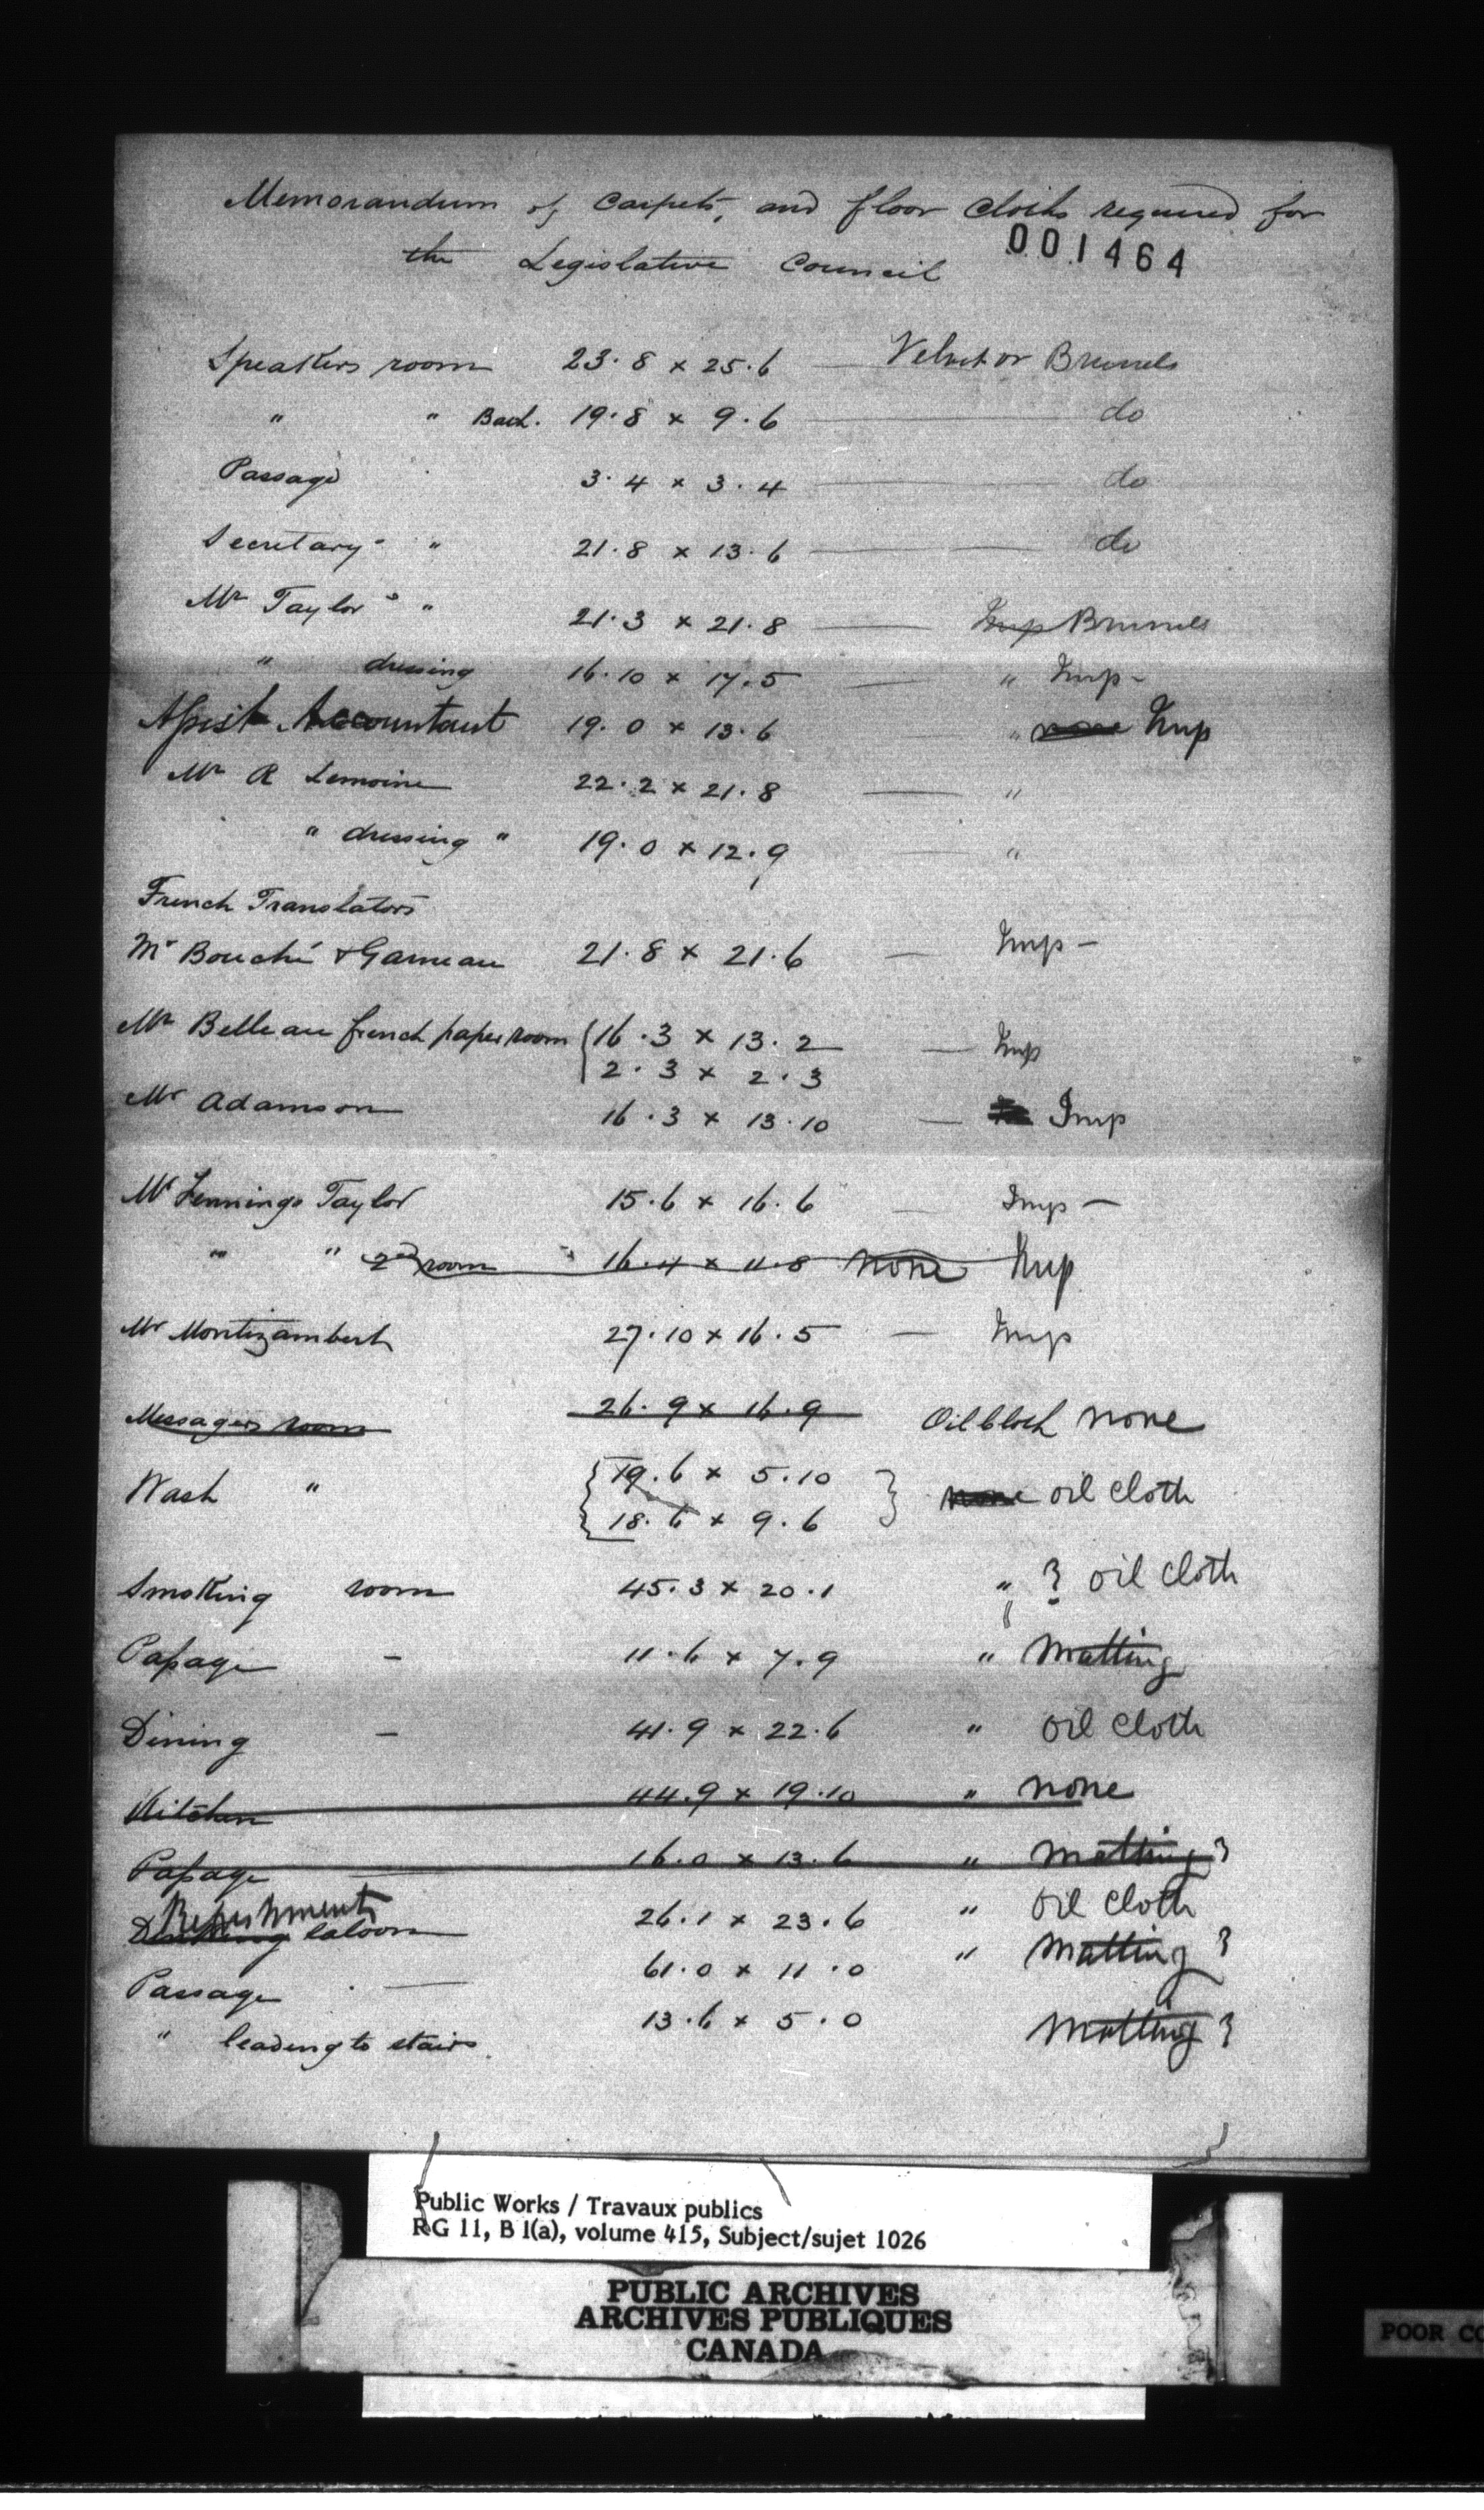 Memorandum of Carpets, and floor Cloths required for
the Legislative Council
001464
Speakers room 23.8 x 25.6 — Velvet or Brussels
" " Back. 19.8 x 9.6 — do
Passage 3.4 x 3.4 — do
Secretary " 21.8 x 13.6 — do
Mr Taylor's " 21.3 x 21.8 — Imp Brussels
" dressing 16.10 x 17.5 — " Imp -
Assist Accountant 19.0 x 13.6 " none Imp
Mr R Lemoine 22.2 x 21.8 — "
" dressing " 19.0 x 12.9 — "
French Translators
Mr Bouché & Garneau 21.8 x 21.6 — Imp -
Mr Belleau french paper room { 16.3 x 13.2 — Imp
2.3 x 2.3
Mr Adamson 16.3 x 13.10 — Imp
Mr Jennings Taylor 15.6 x 16.6 — Imp -
" " 2nd room " 16.4 x 11.8 none Imp
Mr Montizambert 27.10 x 16.5 — Imp
Messagers room 26.9 x 16.9 Oil Cloth none
Wash " { 19.6 x 5.10 } none oil cloth
18.6 x 9.6
Smoking room 45.3 x 20.1 " } oil cloth
Passage - 11.6 x 7.9 " Matting
Dining - 41.9 x 22.6 " oil cloth
Kitchen 44.9 x 19.10 " none
Passage 16.0 x 13.6 " Matting }
Refreshment
Drinking Saloon 26.1 x 23.6 " oil cloth
Passage — 61.0 x 11.0 " Matting }
" leading to stairs. 13.6 x 5.0 Matting }
Public Works / Travaux publics
RG 11, B 1(a), volume 415, Subject/sujet 1026
PUBLIC ARCHIVES
ARCHIVES PUBLIQUES
CANADA
POOR CO